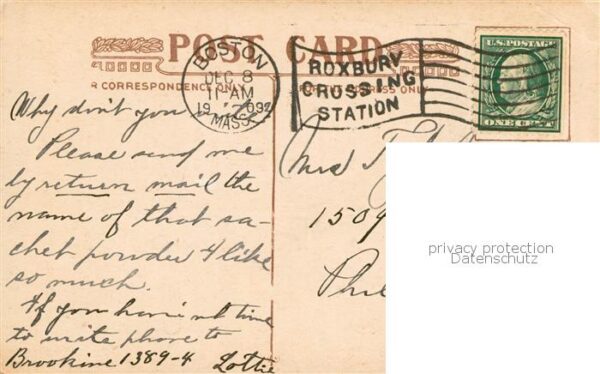 POST CARD
R CORRESPONDENCE ONLY
RESS ONLY
BOSTON
DEC 8
11-AM
1909
MASS.
ROXBURY
CROSSING
STATION
U.S. POSTAGE
ONE CENT
Why don't you
Please send me
by return mail the
name of that sa-
chet powder I like
so much.
If you haven't time
to write phone to
Brookine 1389-4 Lottie
Mrs
1509
Phil
privacy protection
Datenschutz